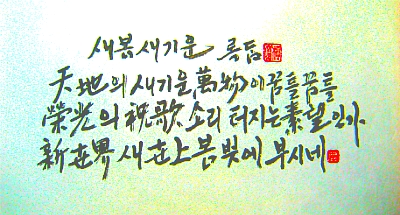 새봄새기운
天地의 새기운 萬物에 꿈틀꿈틀
榮光의 祝歌 소리 터지는 素望인가
新世界 새世上 봄빛에 부시네